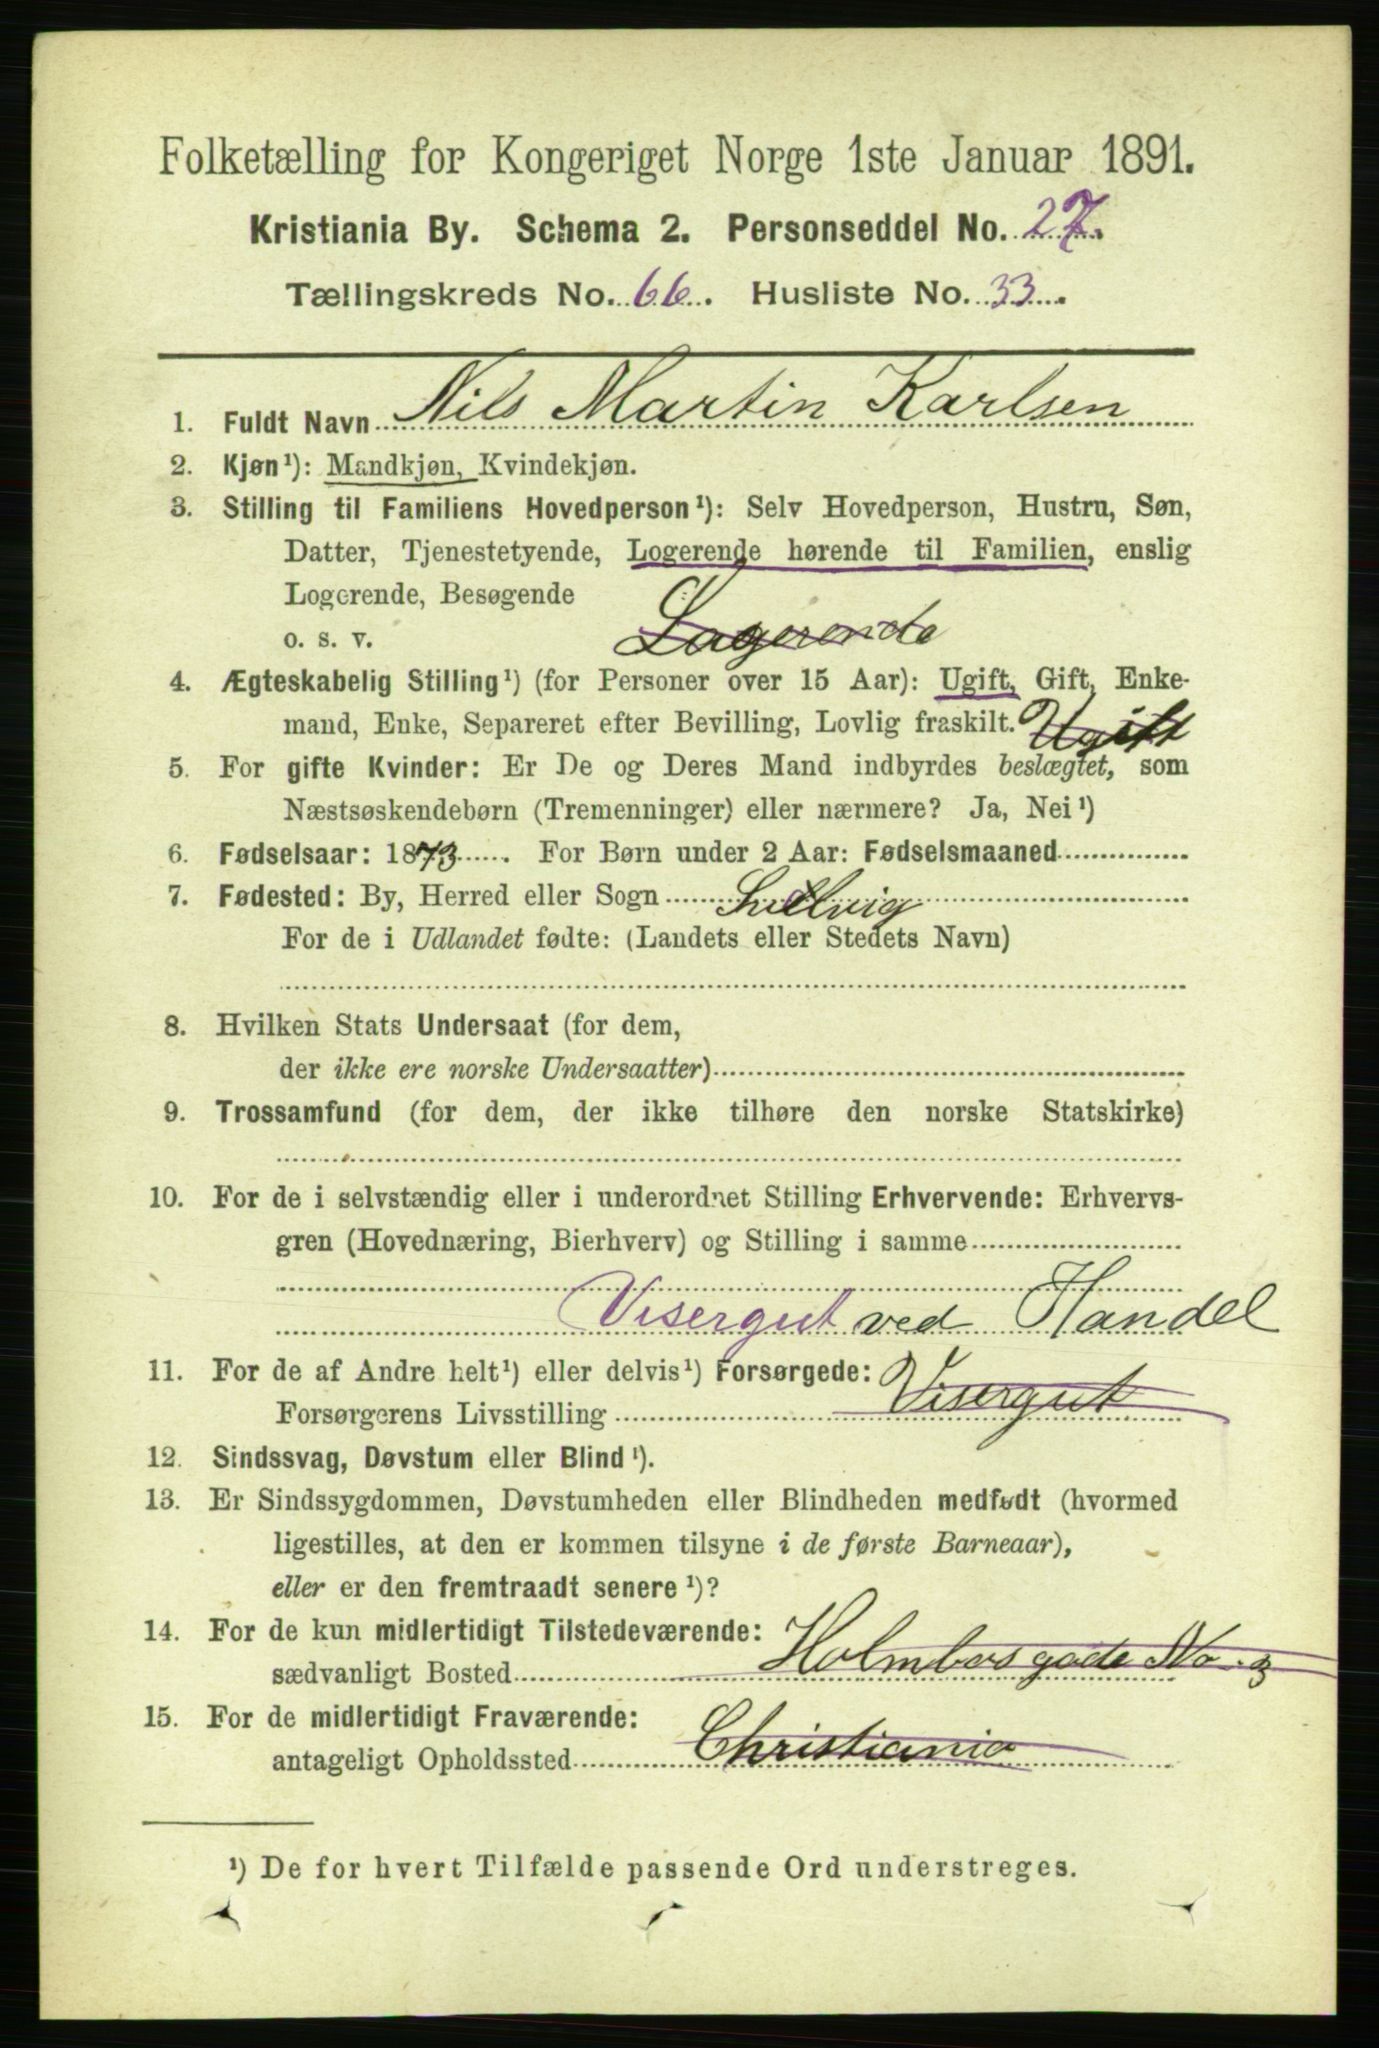 Folketælling for Kongeriget Norge 1ste Januar 1891.
Kristiania By. Schema 2. Personseddel No. 27.
Tællingskreds No. 66. Husliste No. 33.
1. Fuldt Navn Nils Martin Karlsen
2. Kjøn¹): Mandkjøn, Kvindekjøn.
3. Stilling til Familiens Hovedperson¹): Selv Hovedperson, Hustru, Søn,
Datter, Tjenestetyende, Logerende hørende til Familien, enslig
Logerende, Besøgende
o. s. v. Logerende
4. Ægteskabelig Stilling¹) (for Personer over 15 Aar): Ugift, Gift, Enke-
mand, Enke, Separeret efter Bevilling, Lovlig fraskilt. Ugift
5. For gifte Kvinder: Er De og Deres Mand indbyrdes beslægtet, som
Næstsøskendebørn (Tremenninger) eller nærmere? Ja, Nei¹)
6. Fødselsaar: 1873. For Børn under 2 Aar: Fødselsmaaned
7. Fødested: By, Herred eller Sogn Svelvig
For de i Udlandet fødte: (Landets eller Stedets Navn)
8. Hvilken Stats Undersaat (for dem,
der ikke ere norske Undersaatter)
9. Trossamfund (for dem, der ikke tilhøre den norske Statskirke)
10. For de i selvstændig eller i underordnet Stilling Erhvervende: Erhvervs-
gren (Hovednæring, Bierhverv) og Stilling i samme
Visergut ved Handel
11. For de af Andre helt¹) eller delvis¹) Forsørgede:
Forsørgerens Livsstilling Visergut
12. Sindssvag, Døvstum eller Blind¹).
13. Er Sindssygdommen, Døvstumheden eller Blindheden medfødt (hvormed
ligestilles, at den er kommen tilsyne i de første Barneaar),
eller er den fremtraadt senere¹)?
14. For de kun midlertidigt Tilstedeværende:
sædvanligt Bosted Holmbos gade No. 3
15. For de midlertidigt Fraværende:
antageligt Opholdssted Christiania
¹) De for hvert Tilfælde passende Ord understreges.